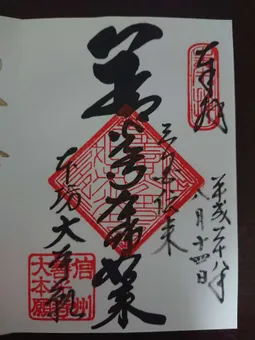 奉拝
平成二十八年
八月十四日
三国伝来
善光寺如来
本坊大本願
信州
善光寺
大本願